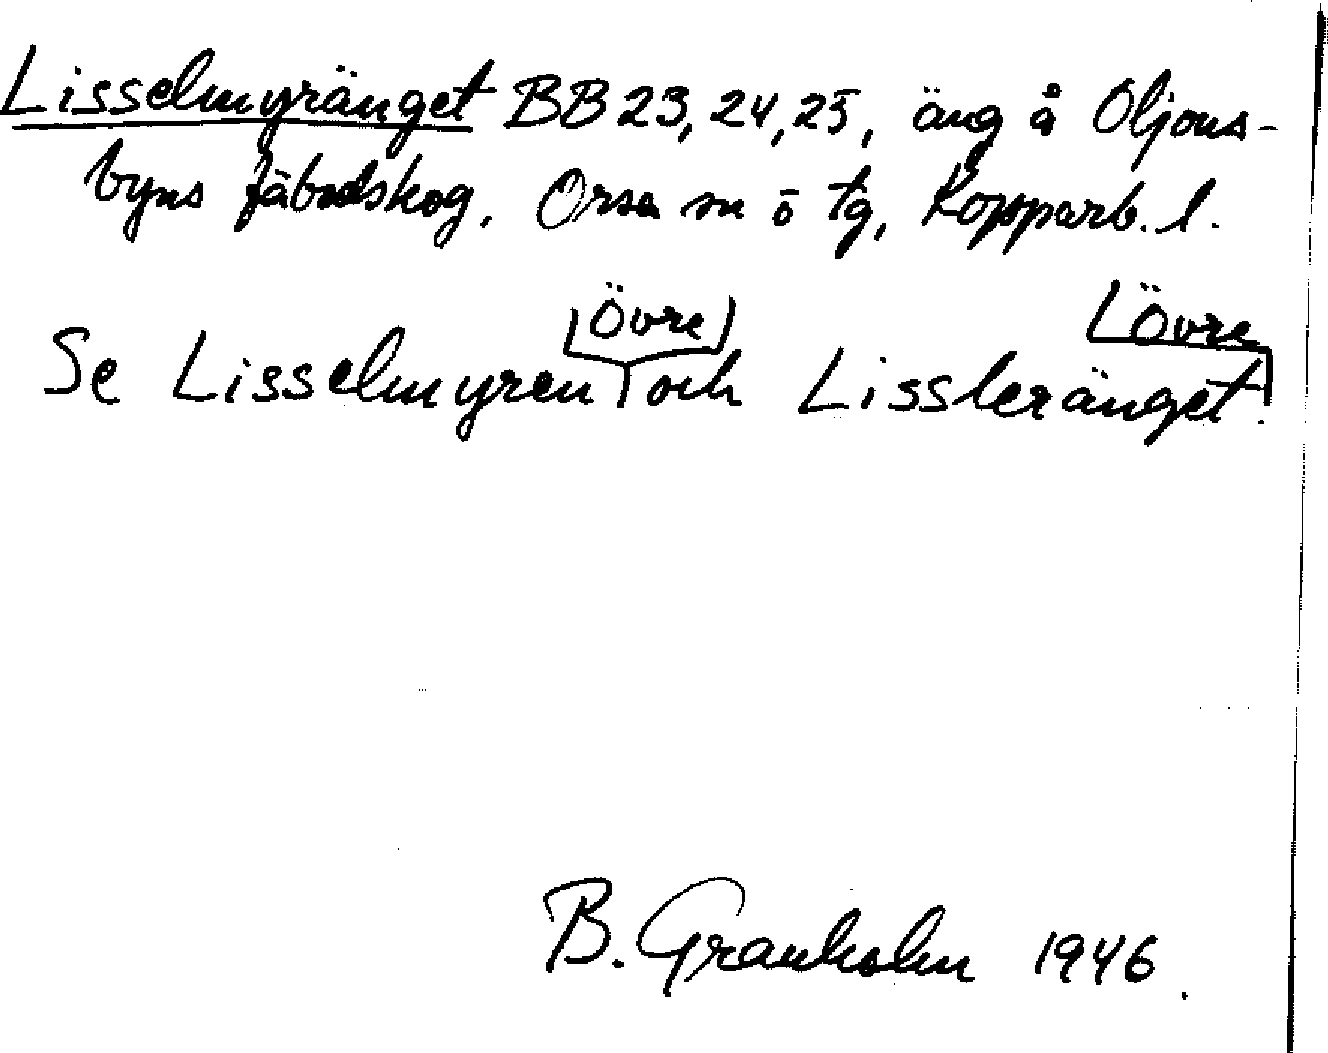 Lisselmyränget BB 23, 24, 25, äng å Oljons-
byns fäbodskog, Orsa sn o tg, Kopparb. l.
Se Lisselmyren, Övre och Lissleränget, Övre.
B. Granholm 1946.